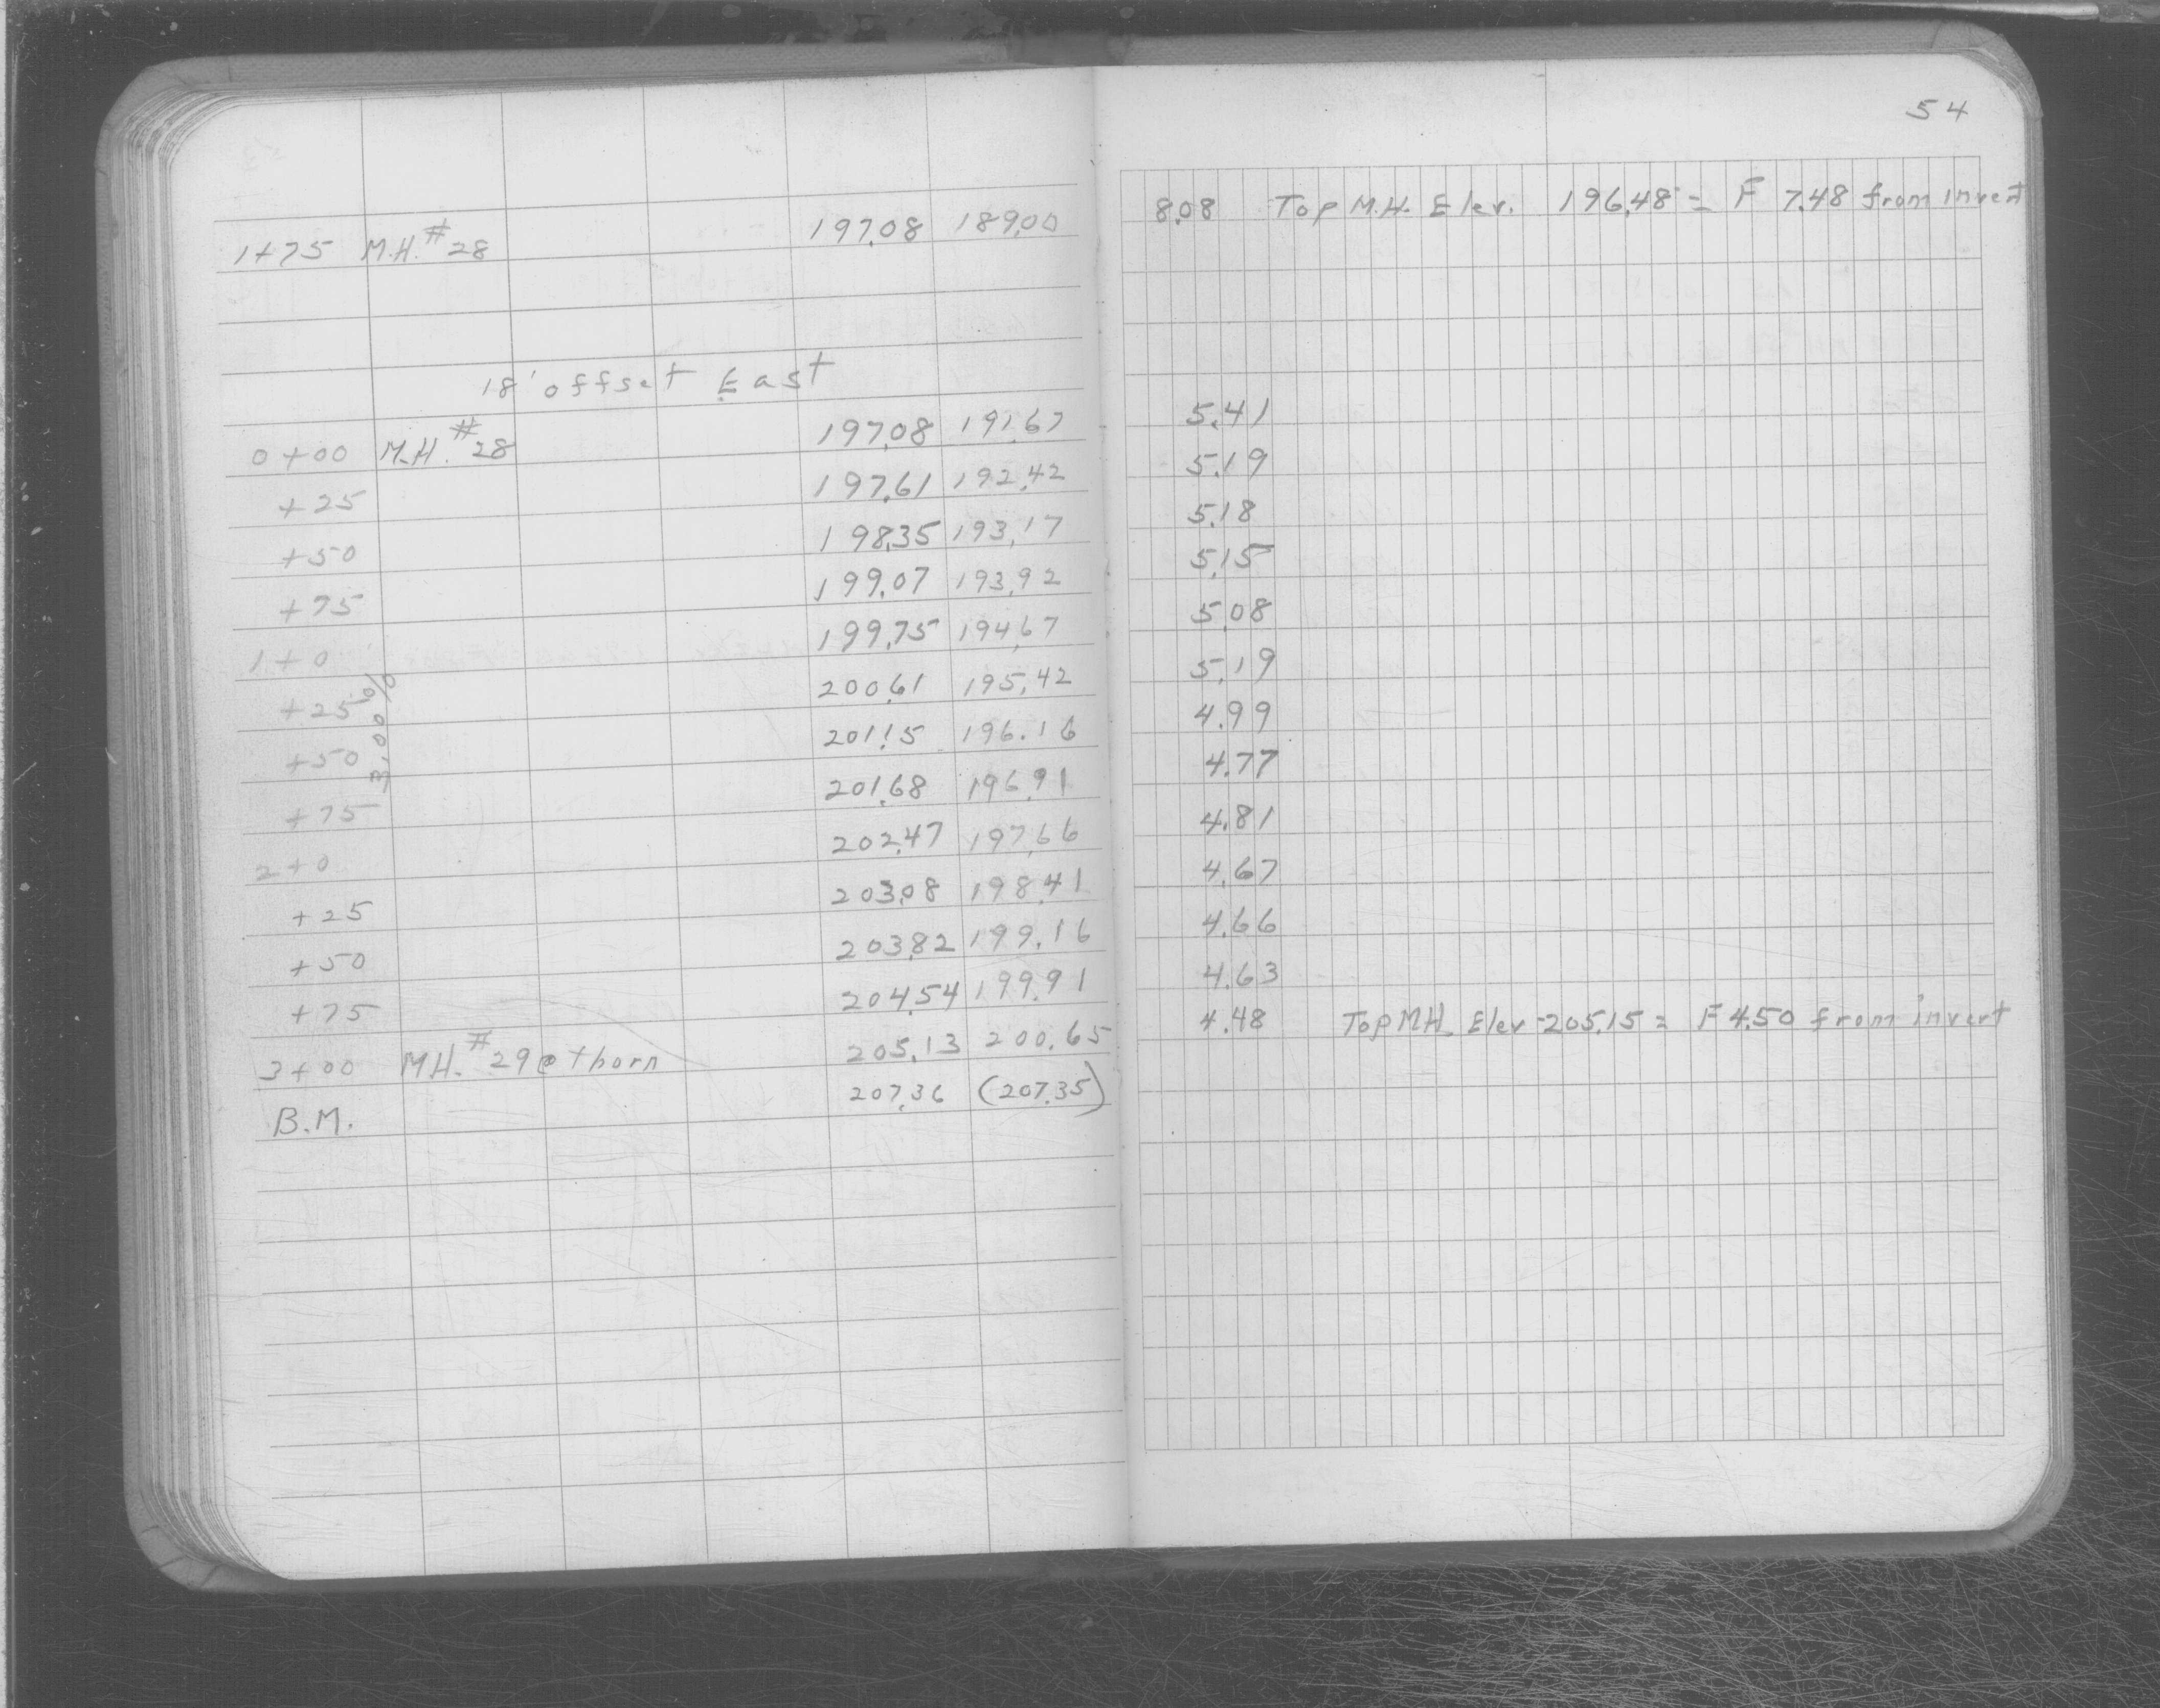 54
1+75 M.H. #28 197.08 189.00 8.08 Top M.H. Elev. 196.48 = F 7.48 from invert
18' offset East
0+00 M.H. #28 197.08 191.67 5.41
+25 197.61 192.42 5.19
+50 198.35 193.17 5.18
+75 199.07 193.92 5.15
1+0 199.75 194.67 5.08
+25 200.61 195.42 5.19
+50 201.15 196.16 4.99
+75 201.68 196.91 4.77
2+0 202.47 197.66 4.81
+25 203.08 198.41 4.67
+50 203.82 199.16 4.66
+75 204.54 199.91 4.63
3+00 MH. #29 @ thorn 205.13 200.65 4.48 Top MH. Elev 205.15 = F 4.50 from invert
B.M. 207.36 (207.35)
3.00%